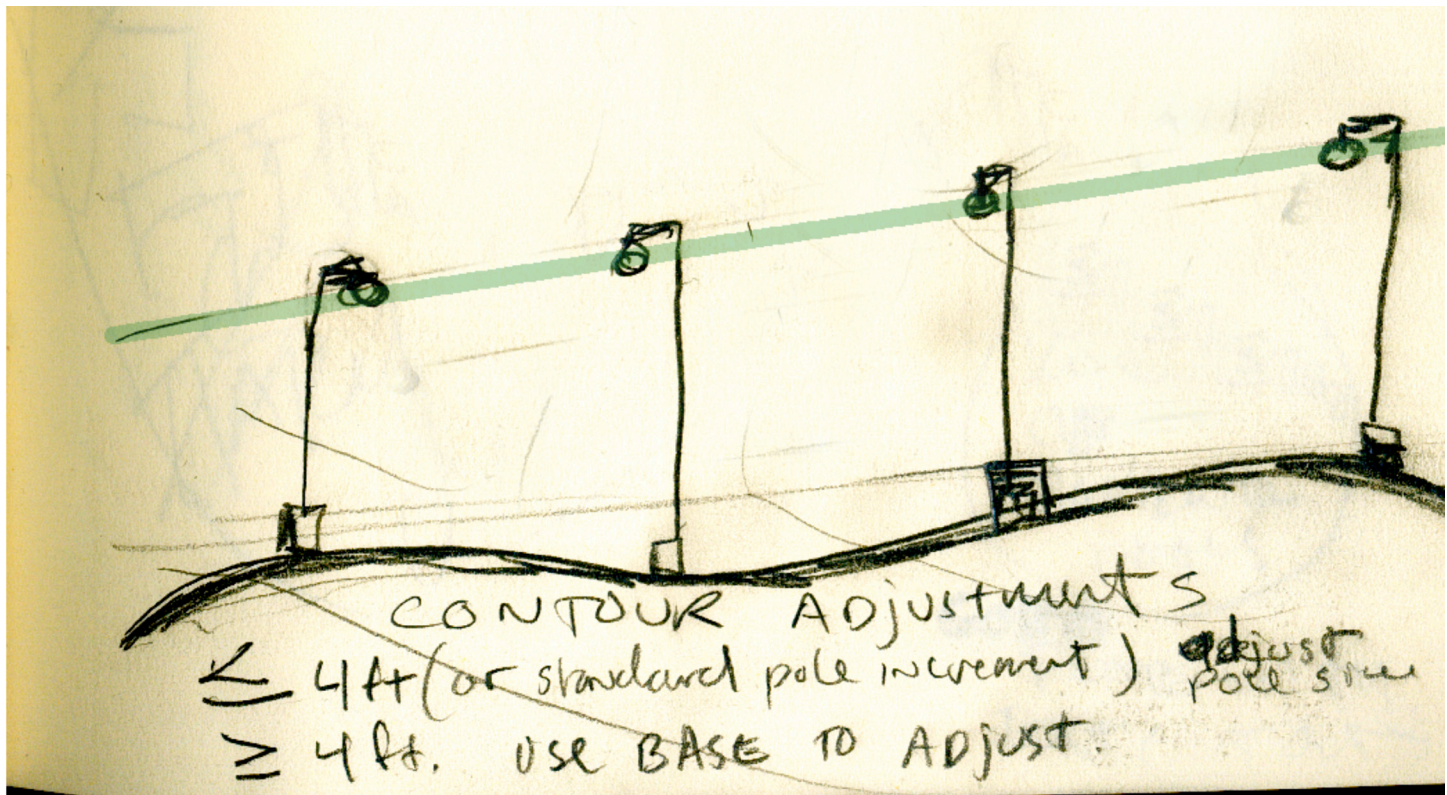 CONTOUR ADjustments
≤ 4ft (or standard pole increment) adjust pole size
≥ 4ft. USE BASE TO ADJUST.